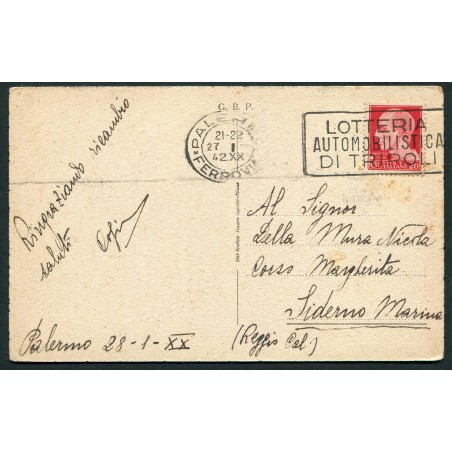 G. B. P.
PALERMO
FERROVIA
21-22
27 I
42.XX
LOTTERIA
AUTOMOBILISTICA
DI TRIPOLI
Ringraziando ricambio
saluti
Palermo 28-1-XX
Al Signor
Della Mura Nicola
Corso Margherita
Siderno Marina
(Reggio Cal.)